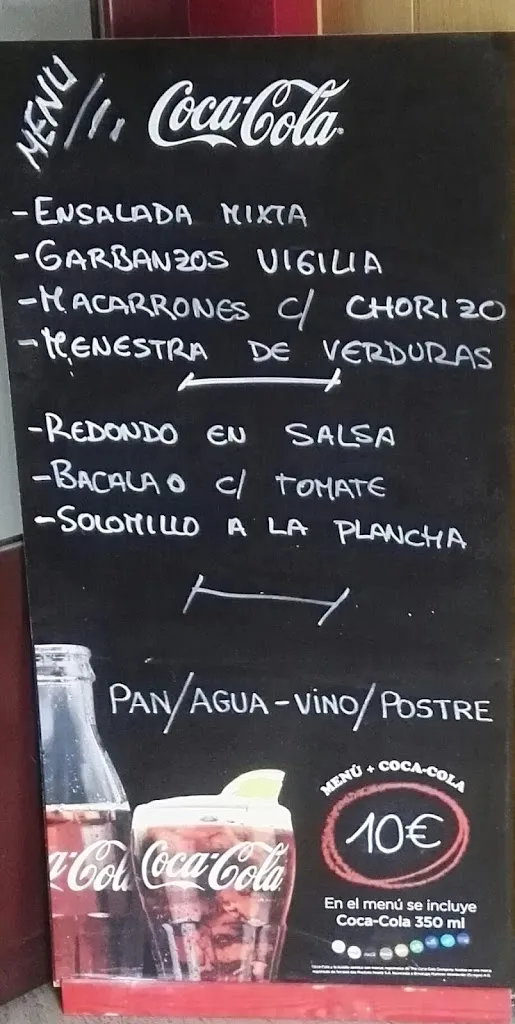 MENU
Coca-Cola
-ENSALADA MIXTA
-GARBANZOS VIGILIA
-MACARRONES C/ CHORIZO
-MENESTRA DE VERDURAS
-REDONDO EN SALSA
-BACALAO C/ TOMATE
-SOLOMILLO A LA PLANCHA
PAN/AGUA-VINO/POSTRE
MENÚ + COCA-COLA
10€
Coca-Cola
Coca-Cola
En el menú se incluye
Coca-Cola 350 ml